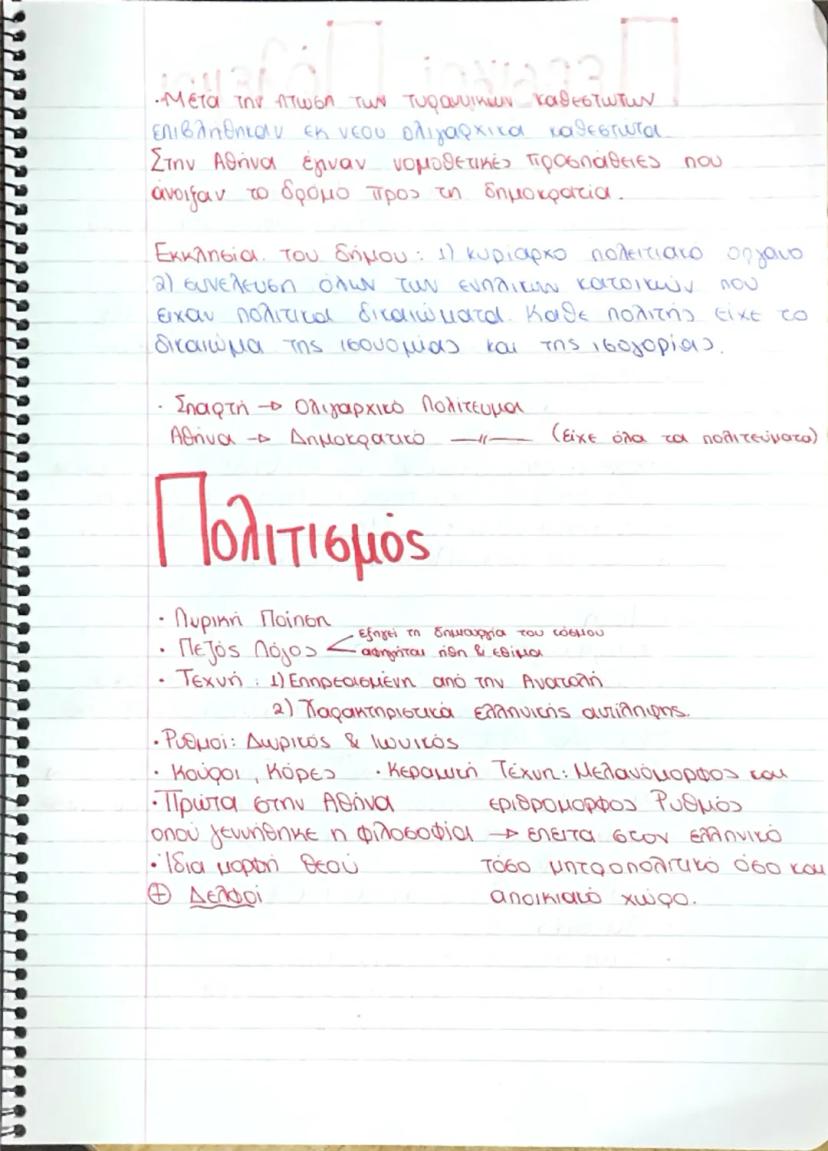 ·Μετά την πτώση των τυραννικών καθεστώτων
επιβλήθηκαν εκ νεου ολιγαρχικα καθεστώτα
Στην Αθήνα έγιναν νομοθετικές προσπάθειες που
άνοιξαν το δρόμο προς τη δημοκρατία.
Εκκλησία του δήμου: 1) κυρίαρχο πολιτιακό όργανο
2) συνελευση όλων των ενηλίκων κατοικων που
ειχαν πολιτικα δικαιώματα. Καθε πολιτής είχε το
δικαιώμα της ισονομίας και της ισογορίας.
· Σπαρτή → Ολιγαρχικό Πολίτευμα
Αθήνα → Δημοκρατικό —//— (είχε όλα τα πολιτεύματα)
Πολιτισμός
· Λυρική Ποίηση
· Πεζός Λόγος < εξηγεί τη δημιουργία του κόσμου
αφηγήται ήθη & εθιμα
· Τεχνή: 1) Επηρεασμένη από την Ανατολή
2) Χαρακτηριστικά ελληνικής αντίληψης.
· Ρυθμοί: Δωρικός & Ιωνικός
· Κούροι, Κόρες · Κεραμική Τέχνη: Μελανόμορφος και
· Πρώτα στην Αθήνα εριθρομορφος Ρυθμός
οπού γεννήθηκε η φιλοσοφία → επειτα στον ελληνικό
· Ίδια μορφή θεού τόσο μητροπολιτικό όσο και
⊕ Δελφοί αποικιακό χώρο.